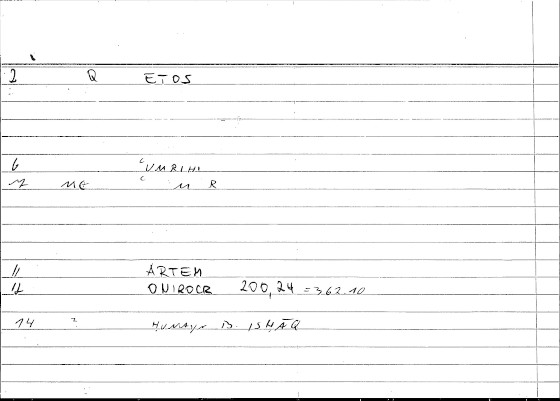 2 Q ETOS
6 ʿUMRIHI
7 ME ʿ M R
11 ARTEM
12 ONIROCR 200,24 = 362.10
14 " HUNAYN B. ISḤĀQ